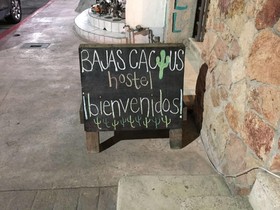 BAJAS CACTUS
hostel
¡bienvenidos!